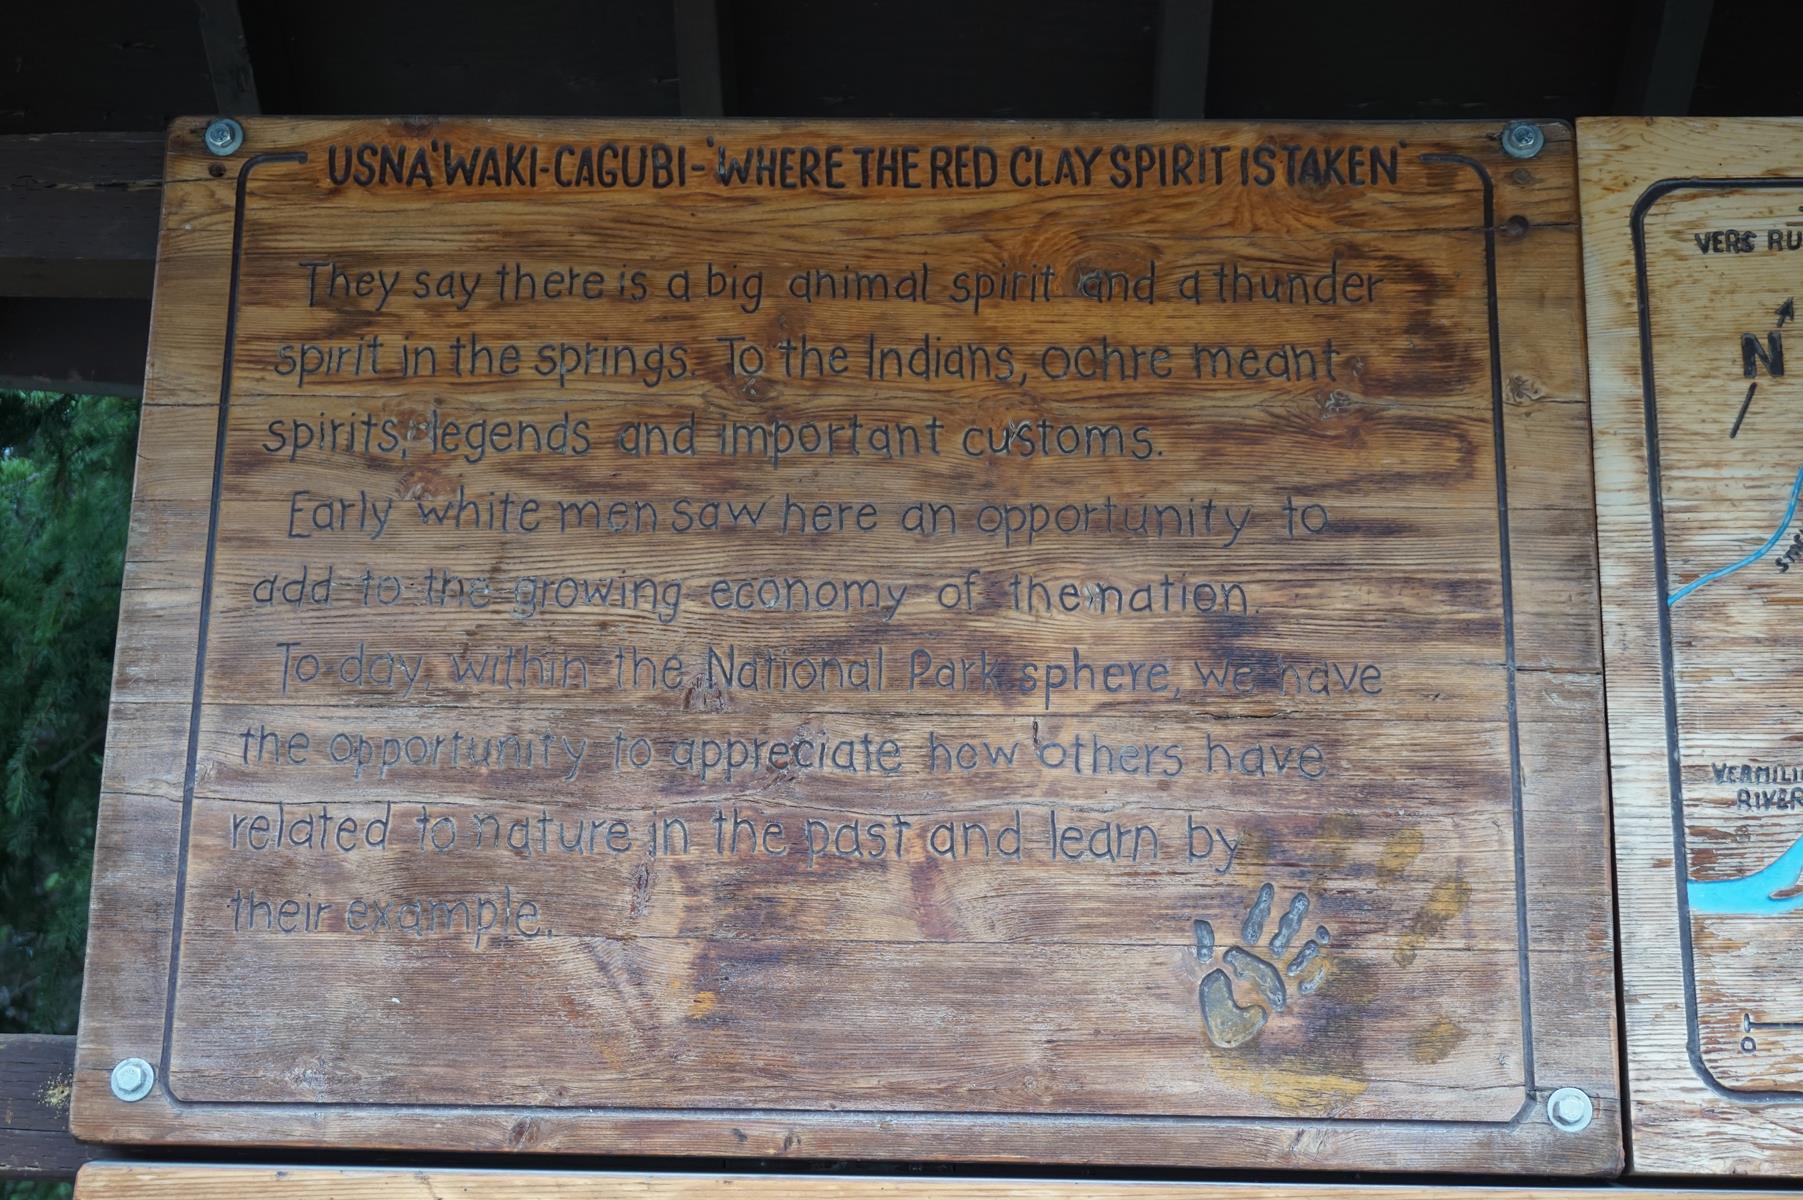 USNA'WAKI-CAGUBI-'WHERE THE RED CLAY SPIRIT IS TAKEN'
They say there is a big animal spirit and a thunder
spirit in the springs. To the Indians, ochre meant
spirits, legends and important customs.
Early white men saw here an opportunity to
add to the growing economy of the nation.
To day, within the National Park sphere, we have
the opportunity to appreciate how others have
related to nature in the past and learn by
their example.
VERS RU
N
VERMILI
RIVER